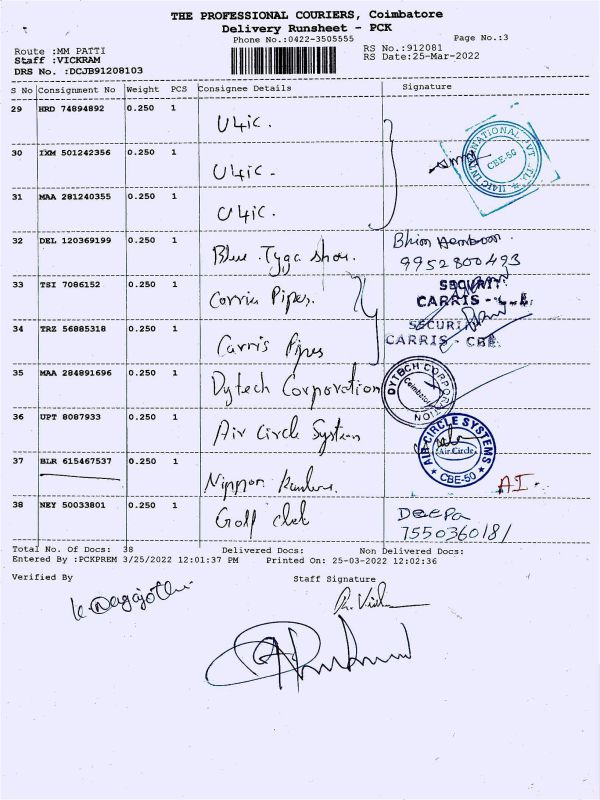 THE PROFESSIONAL COURIERS, Coimbatore
Delivery Runsheet - PCK
Phone No.:0422-3505555
Page No.:3
Route :MM PATTI
RS No.:912081
Staff :VICKRAM
RS Date:25-Mar-2022
DRS No. :DCJB91208103
S No Consignment No Weight PCS Consignee Details Signature
29 HRD 74894892 0.250 1 U4ic.
30 IXM 501242356 0.250 1 U4ic.
U4IC INTERNATIONAL PVT. LTD. CBE-50
31 MAA 281240355 0.250 1 U4ic.
32 DEL 120369199 0.250 1 Blue Tyga shoe. 9952800493
33 TSI 7086152 0.250 1 Pipes. SECURITY
CARRIS - CBE.
34 TRZ 56885318 0.250 1 Carris Pipes SECURITY
CARRIS - CBE.
35 MAA 284891696 0.250 1 Dytech Corporation DYTECH CORPORATION Coimbatore
36 UPT 8087933 0.250 1 Air Circle System AIR CIRCLE SYSTEMS Air Circle CBE-50
37 BLR 615467537 0.250 1 Nippon A.I.
38 NEY 50033801 0.250 1 Golf club DEEPA
7550360181
Total No. Of Docs: 38 Delivered Docs: Non Delivered Docs:
Entered By :PCKPREM 3/25/2022 12:01:37 PM Printed On: 25-03-2022 12:02:36
Verified By Staff Signature